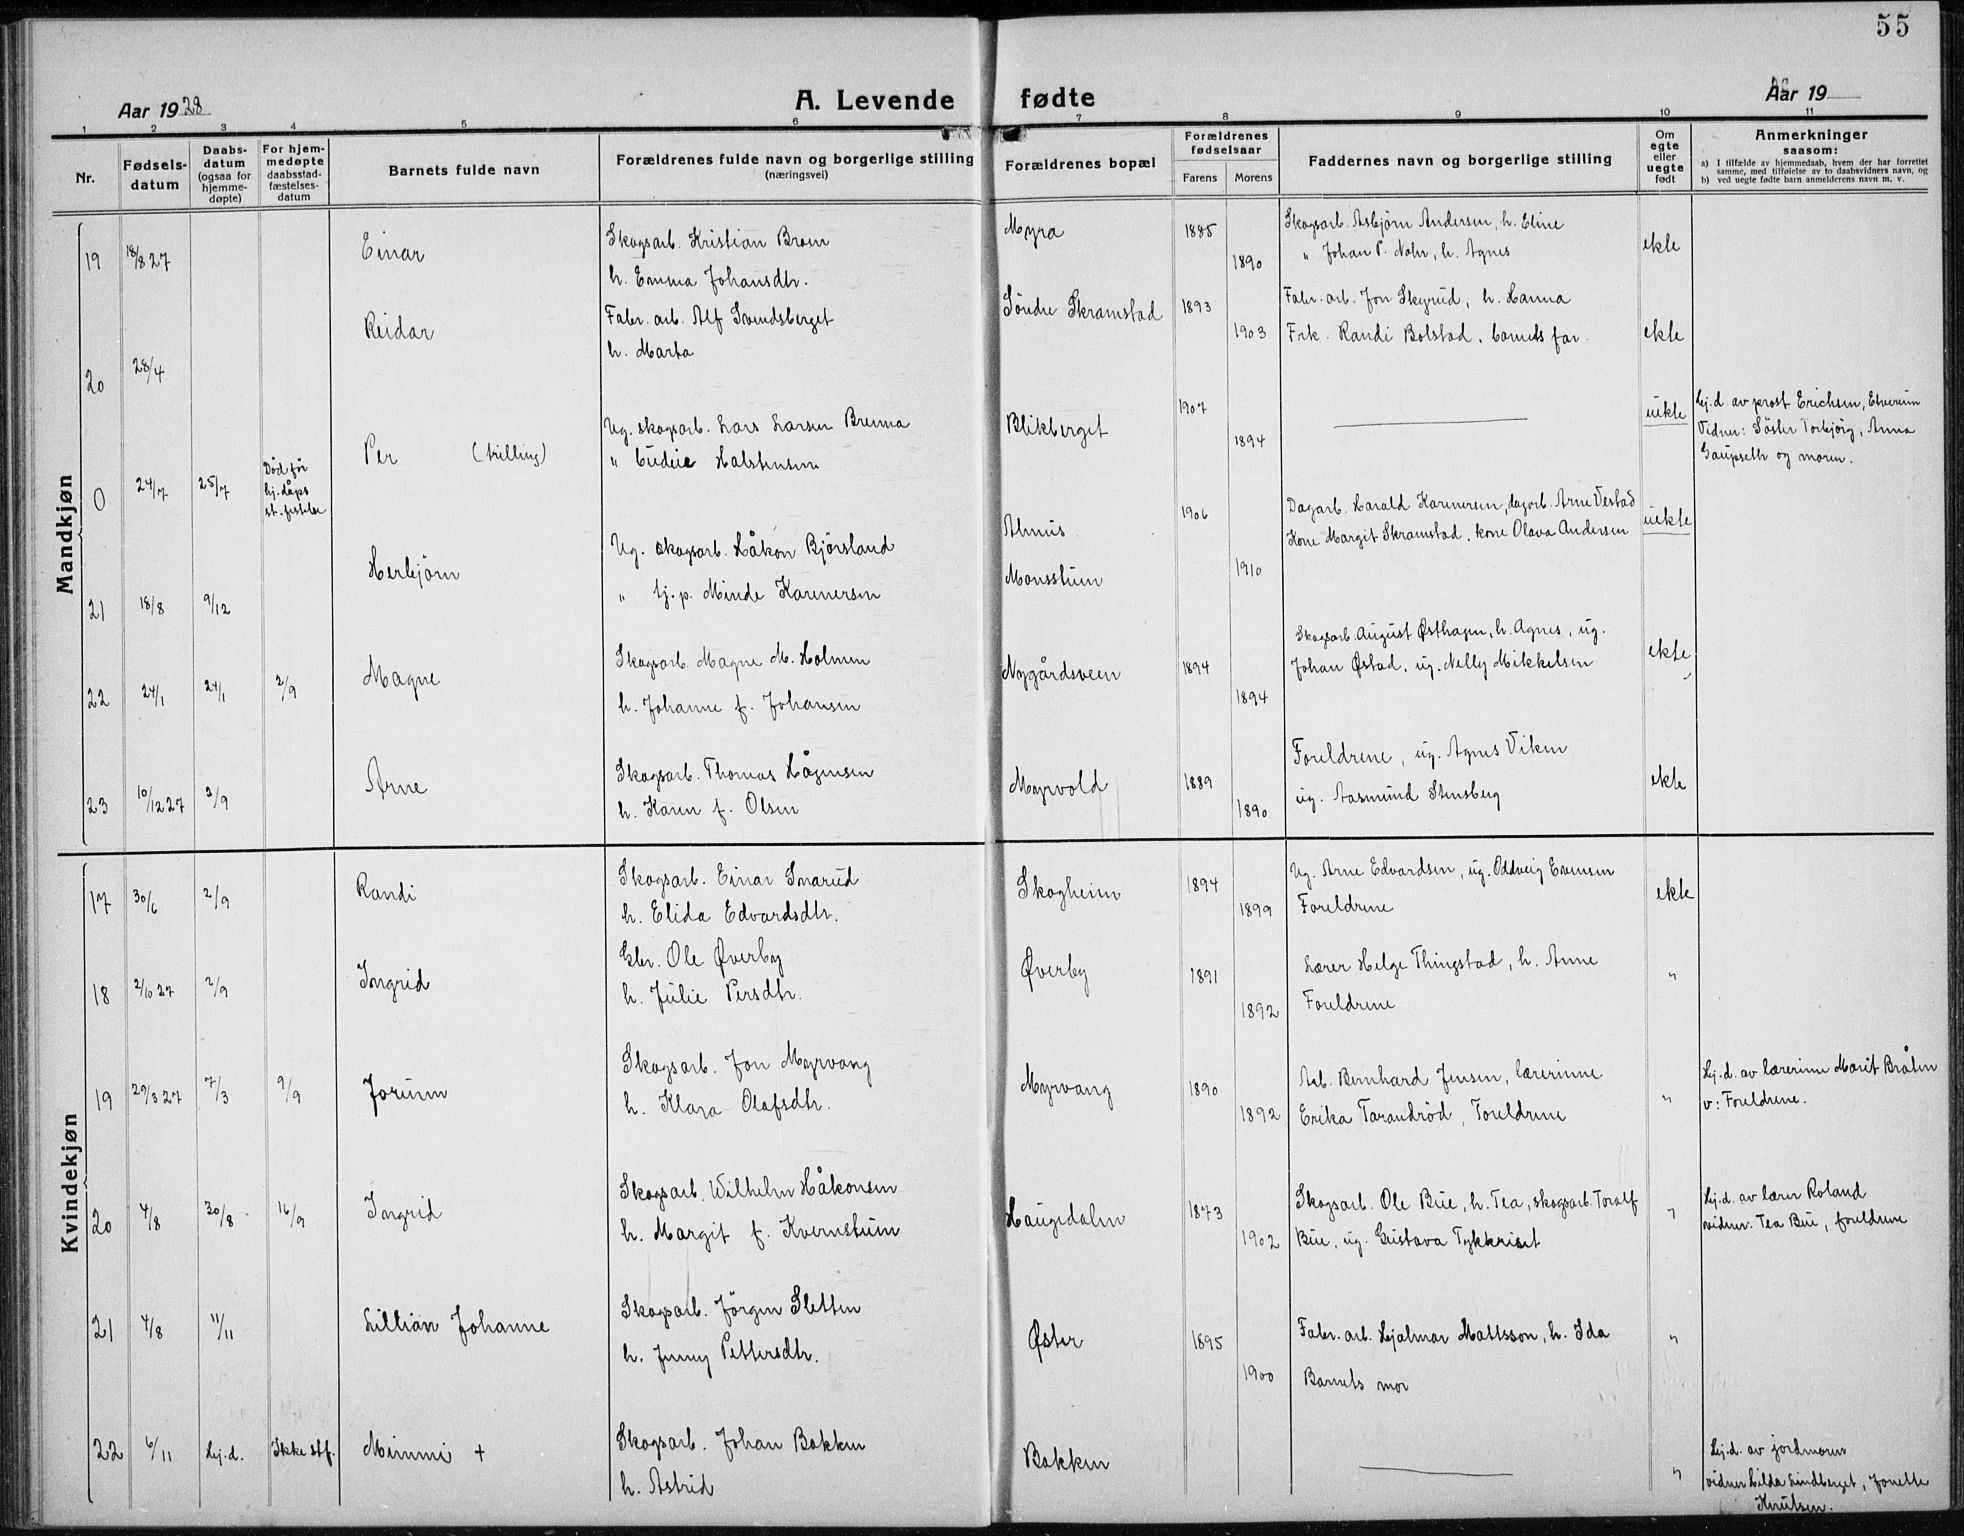 55
Aar 1928
A. Levende fødte
Aar 19
1 2 3 4 5 6 7 8 9 10 11
Nr.
Fødsels-
datum
Daabs-
datum
(ogsaa for
hjemme-
døpte)
For hjem-
medøpte
daabsstad-
fæstelses-
datum
Barnets fulde navn
Forældrenes fulde navn og borgerlige stilling
(næringsvei)
Forældrenes bopæl
Forældrenes
fødselsaar
Farens Morens
Faddernes navn og borgerlige stilling
Om
egte
eller
uegte
født
Anmerkninger
saasom:
a) I tilfælde av hjemmedaab, hvem der har forrettet
samme, med tilføielse av to daabsvidners navn, og
b) ved uegte fødte barn anmelderens navn m. v.
Mandkjøn
19 18/8 27 Einar
Skogsarb. Kristian Bræn
h. Emma Johansdtr.
Myra 1885 1890
Skogsarb. Asbjörn Andersen, h. Eline
" Johan P. Nohr, h. Agnes
ekte
20 28/4 Reidar
Fabr. arb. Alf Svendsberget
h. Marta
Söndre Skramstad 1893 1903
Fabr. arb. Jon Skyrud, h. Hanna
Frk. Randi Bolstad, barnets far.
ekte
0 24/7 25/7
Död för
hj. dåps
st. festelse
Per (trilling)
Ug. skogsarb. Lars Larsen Brenna
" budeie Halstensen
Blikberget 1907 1894
uekte
Hj. d. av prost Erichsen, Elverum
Vidner: Söster Torbjörg, Anna
Gaupseth og moren.
21 18/8 9/12 Herbjörn
Ug. skogsarb. Håkon Björsland
" tj. p. Minde Karenersen
Almus
Monsstuen 1906 1910
Dagarb. Harald Karenersen, dagarb. Arne Vestad
Kone Margit Skramstad, kone Olava Andersen
uekte
22 24/1 24/1 2/9 Magne
Skogsarb. Magne M. Holmen
h. Johanne f. Johansen
Nygårdsveen 1894 1894
Skogsarb. August Østhagen, h. Agnes, ug.
Johan Østad, ug. Nelly Mikkelsen
ekte
23 10/12 27 2/9 Arne
Skogsarb. Thomas Hågensen
h. Karen f. Olsen
Myrvold 1889 1890
Foreldrene, ug. Agnes Viken
ug. Aasmund Stensberg
ekte
Kvindekjøn
17 30/6 2/9 Randi
Skogsarb. Einar Snarud
h. Elida Edvardsdtr.
Skogheim 1894 1899
Ug. Arne Edvardsen, ug. Oddveig Evensen
Foreldrene
ekte
18 2/10 27 2/9 Ingrid
Gbr. Ole Øverby
h. Julie Persdtr.
Øverby 1891 1892
Lærer Helge Thingstad, h. Anne
Foreldrene
"
19 29/3 27 7/3 9/9 Jorunn
Skogsarb. Jon Myrvang
h. Klara Olafsdtr.
Myrvang 1890 1892
Arb. Bernhard Jensen, lærerinne
Erika Tarandröd, Foreldrene
"
Hj. d. av lærerinne Marit Bråten
v: Foreldrene.
20 4/8 30/8 16/9 Ingrid
Skogsarb. Wilhelm Håkonsen
h. Margit f. Kvernstuen
Haugedalen 1873 1902
Skogsarb. Ole Bue, h. Tea, skogsarb. Toralf
Bue, ug. Gustava Tykkriset
"
Hj. d. av lærer Roland
vidner: Tea Bue, foreldrene
21 4/8 11/11 Lillian Johanne
Skogsarb. Jörgen Sletten
h. Jenny Pettersdtr.
Øster 1895 1900
Fabr. arb. Hjalmar Mattsson, h. Ida
Barnets mor
"
22 6/11 Hj. d. Ikke stf. Mimmi +
Skogsarb. Johan Bakken
h. Astrid
Bakken
"
Hj. d. av jordmoren
vidner Hilda Lindberget, Jonette
Knutsen.